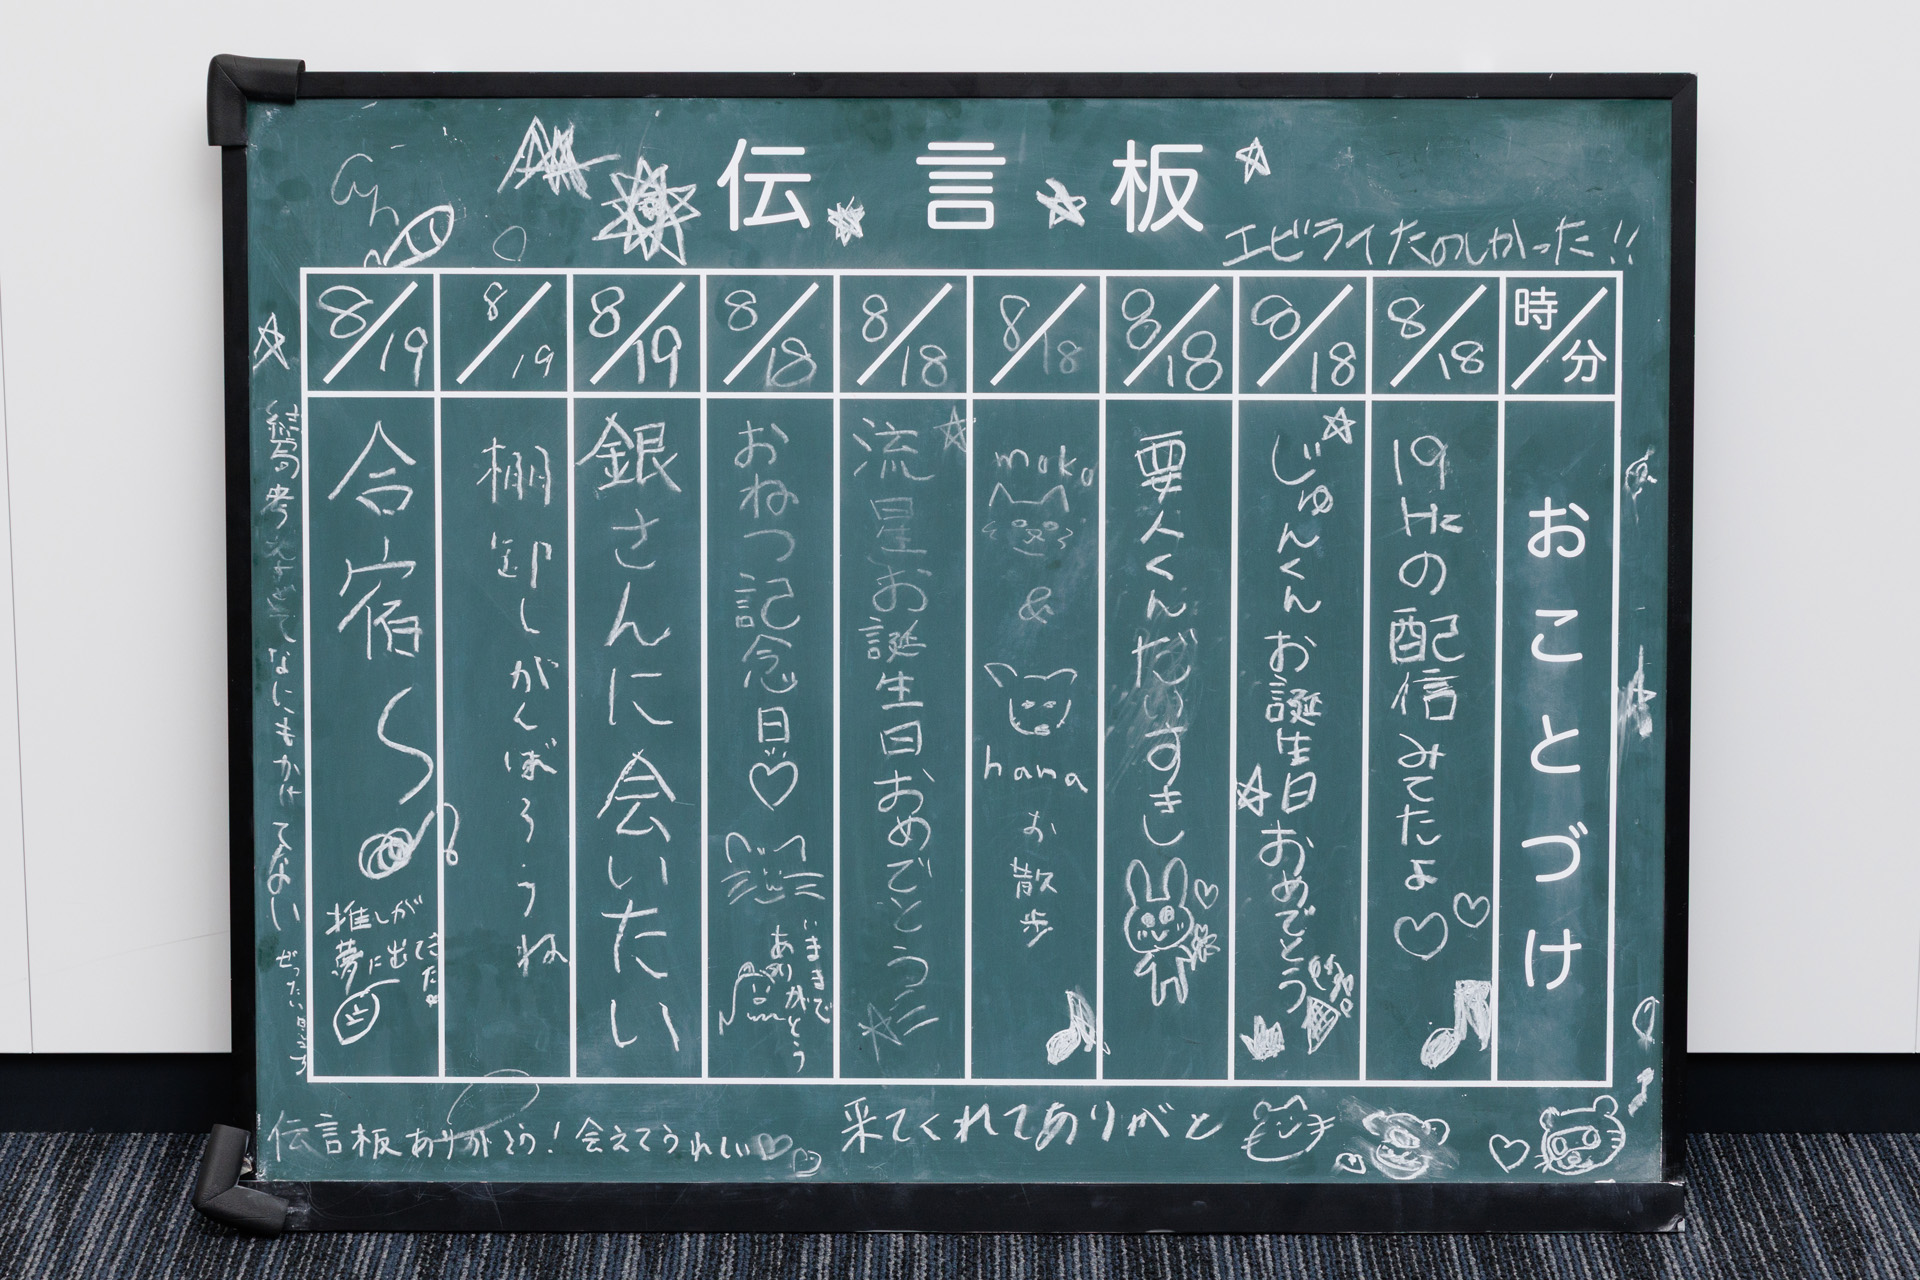 伝言板
エビライたのしかった!!
時/分
おことづけ
8/18
19Hzの配信みてたよ
8/18
じゅんくんお誕生日おめでとう
8/18
要人くんだいすきし
8/18
moko
&
hana
お散歩
8/18
流星お誕生日おめでとう
8/18
おねつ記念日
いままで
ありがとう
8/19
銀さんに会いたい
8/19
棚卸しがんばろうね
8/19
合宿〜
推しが
夢に出てきた
なにもかけてない
伝言板ありがとう!会えてうれしい
来てくれてありがと